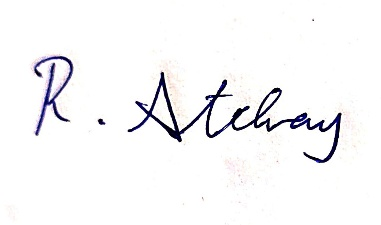 R. Atchay